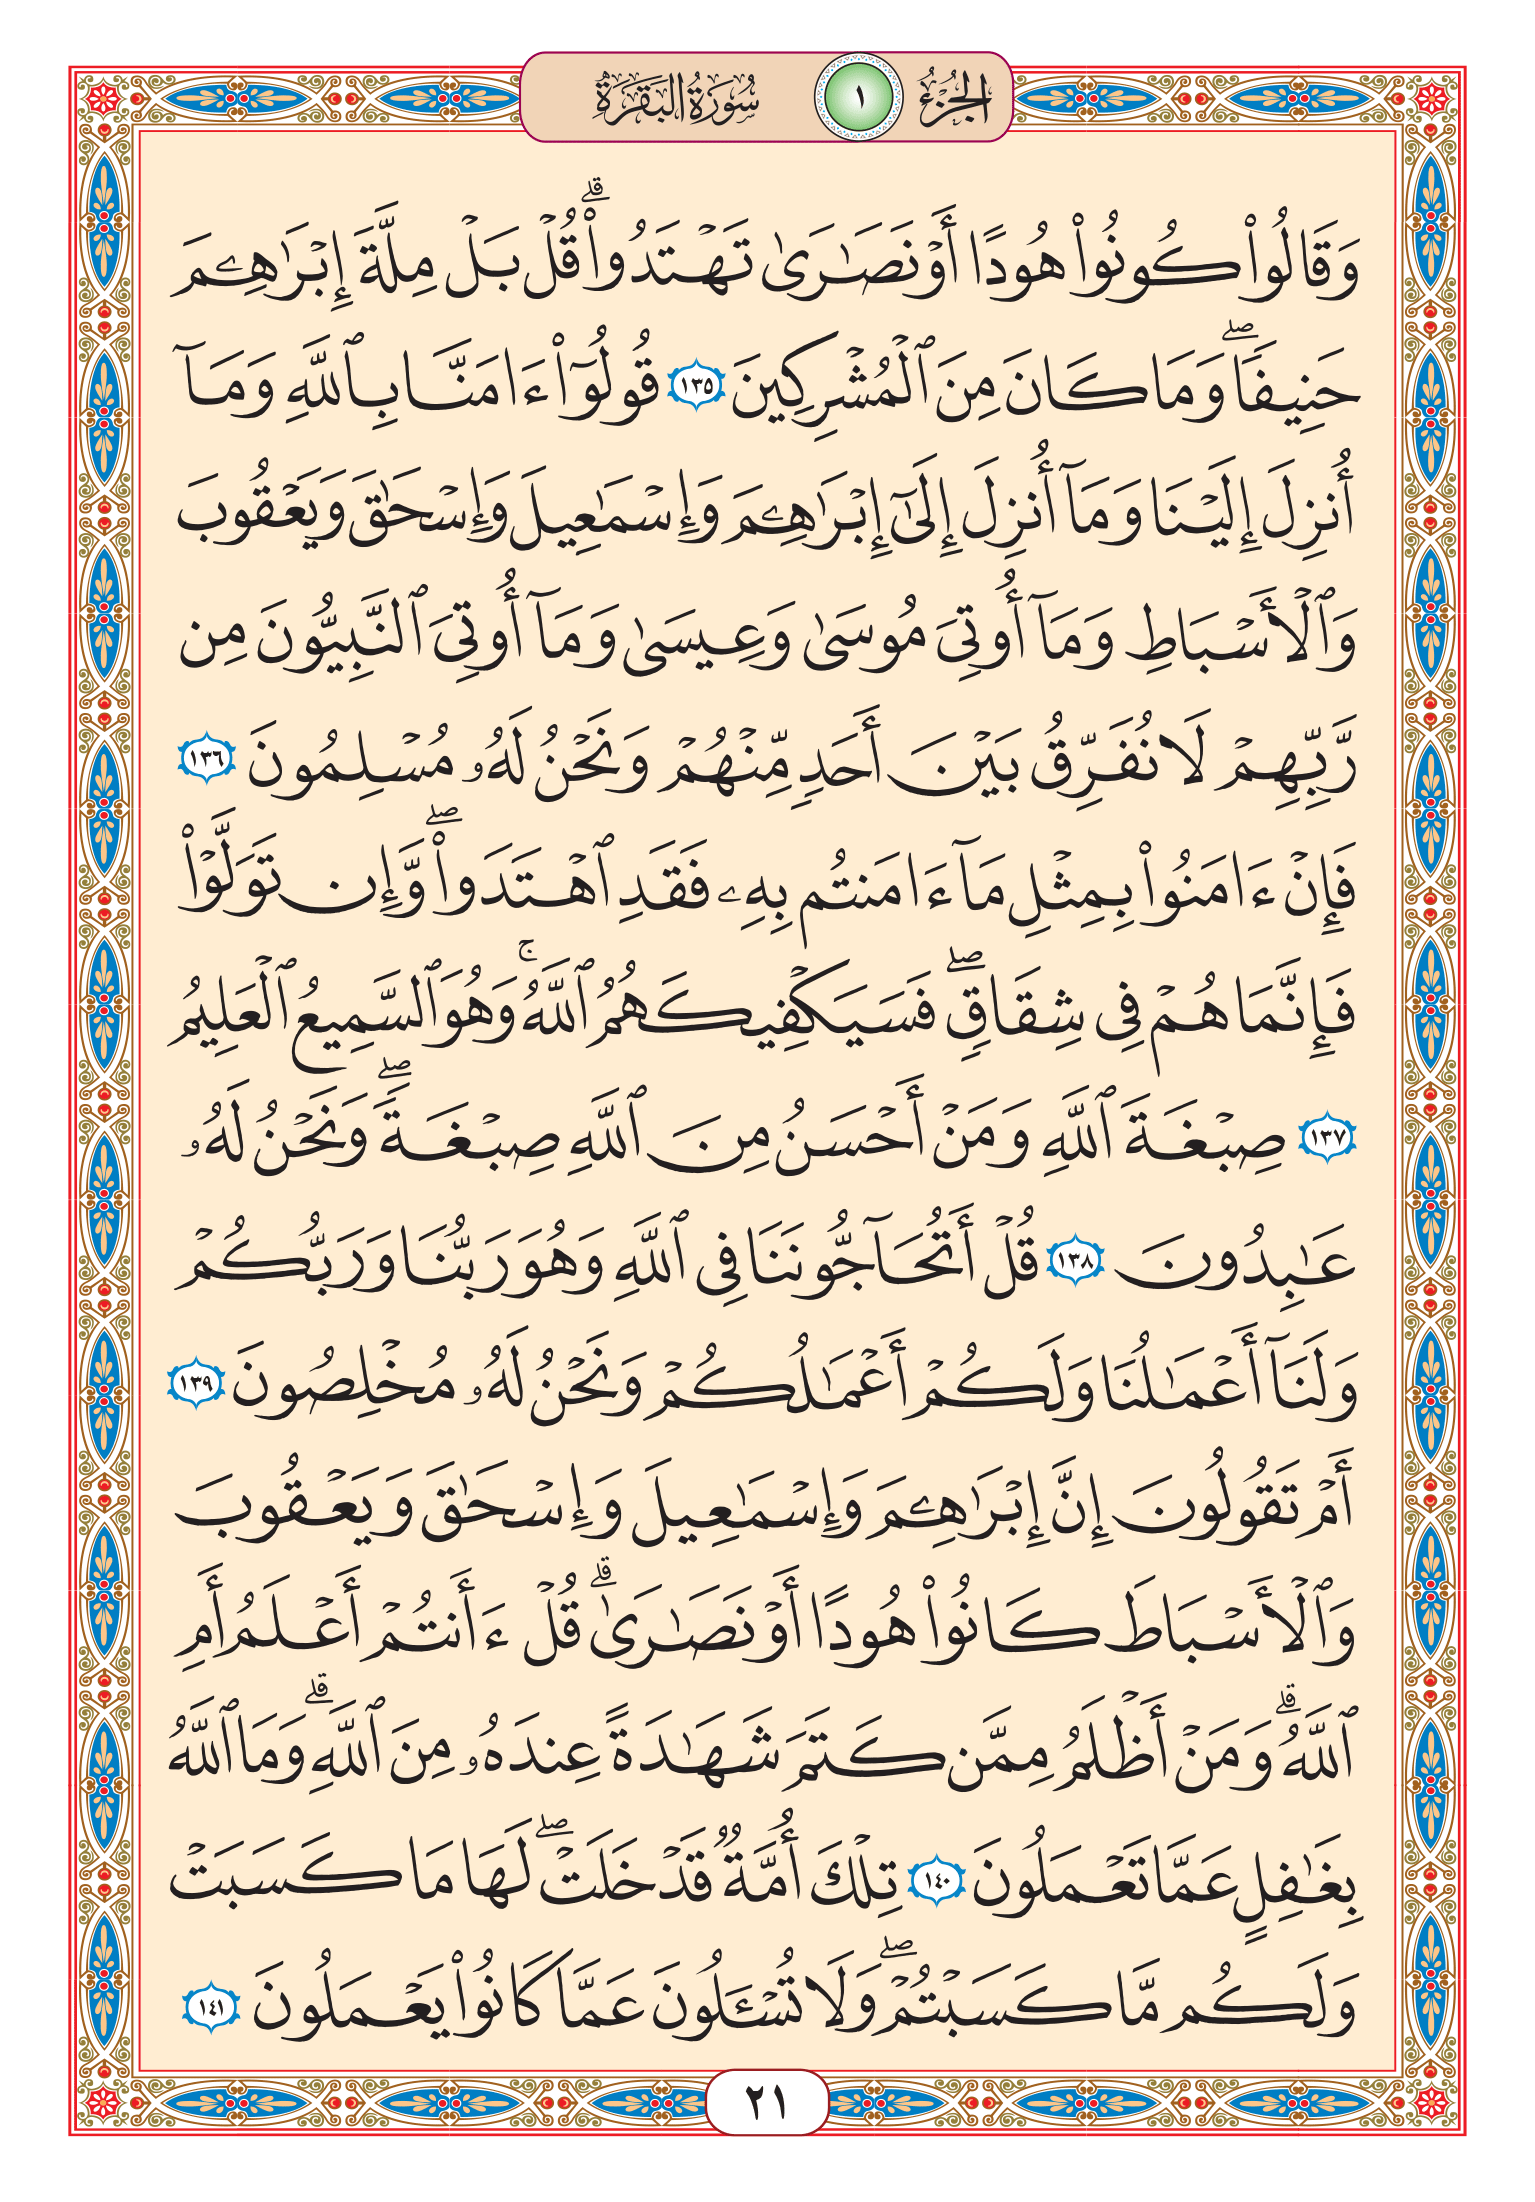 الجزء ١ سورة البقرة
وَقَالُوا۟ كُونُوا۟ هُودًا أَوْ نَصَـٰرَىٰ تَهْتَدُوا۟ ۗ قُلْ بَلْ مِلَّةَ إِبْرَٰهِـۧمَ
حَنِيفًا ۖ وَمَا كَانَ مِنَ ٱلْمُشْرِكِينَ ١٣٥ قُولُوٓا۟ ءَامَنَّا بِٱللَّهِ وَمَآ
أُنزِلَ إِلَيْنَا وَمَآ أُنزِلَ إِلَىٰٓ إِبْرَٰهِـۧمَ وَإِسْمَـٰعِيلَ وَإِسْحَـٰقَ وَيَعْقُوبَ
وَٱلْأَسْبَاطِ وَمَآ أُوتِىَ مُوسَىٰ وَعِيسَىٰ وَمَآ أُوتِىَ ٱلنَّبِيُّونَ مِن
رَّبِّهِمْ لَا نُفَرِّقُ بَيْنَ أَحَدٍ مِّنْهُمْ وَنَحْنُ لَهُۥ مُسْلِمُونَ ١٣٦
فَإِنْ ءَامَنُوا۟ بِمِثْلِ مَآ ءَامَنتُم بِهِۦ فَقَدِ ٱهْتَدَوا۟ ۖ وَّإِن تَوَلَّوْا۟
فَإِنَّمَا هُمْ فِى شِقَاقٍ ۖ فَسَيَكْفِيكَهُمُ ٱللَّهُ ۚ وَهُوَ ٱلسَّمِيعُ ٱلْعَلِيمُ
١٣٧ صِبْغَةَ ٱللَّهِ وَمَنْ أَحْسَنُ مِنَ ٱللَّهِ صِبْغَةً ۖ وَنَحْنُ لَهُۥ
عَـٰبِدُونَ ١٣٨ قُلْ أَتُحَآجُّونَنَا فِى ٱللَّهِ وَهُوَ رَبُّنَا وَرَبُّكُمْ
وَلَنَآ أَعْمَـٰلُنَا وَلَكُمْ أَعْمَـٰلُكُمْ وَنَحْنُ لَهُۥ مُخْلِصُونَ ١٣٩
أَمْ تَقُولُونَ إِنَّ إِبْرَٰهِـۧمَ وَإِسْمَـٰعِيلَ وَإِسْحَـٰقَ وَيَعْقُوبَ
وَٱلْأَسْبَاطَ كَانُوا۟ هُودًا أَوْ نَصَـٰرَىٰ ۗ قُلْ ءَأَنتُمْ أَعْلَمُ أَمِ
ٱللَّهُ ۗ وَمَنْ أَظْلَمُ مِمَّن كَتَمَ شَهَـٰدَةً عِندَهُۥ مِنَ ٱللَّهِ ۗ وَمَا ٱللَّهُ
بِغَـٰفِلٍ عَمَّا تَعْمَلُونَ ١٤٠ تِلْكَ أُمَّةٌ قَدْ خَلَتْ ۖ لَهَا مَا كَسَبَتْ
وَلَكُم مَّا كَسَبْتُمْ ۖ وَلَا تُسْـَٔلُونَ عَمَّا كَانُوا۟ يَعْمَلُونَ ١٤١
٢١